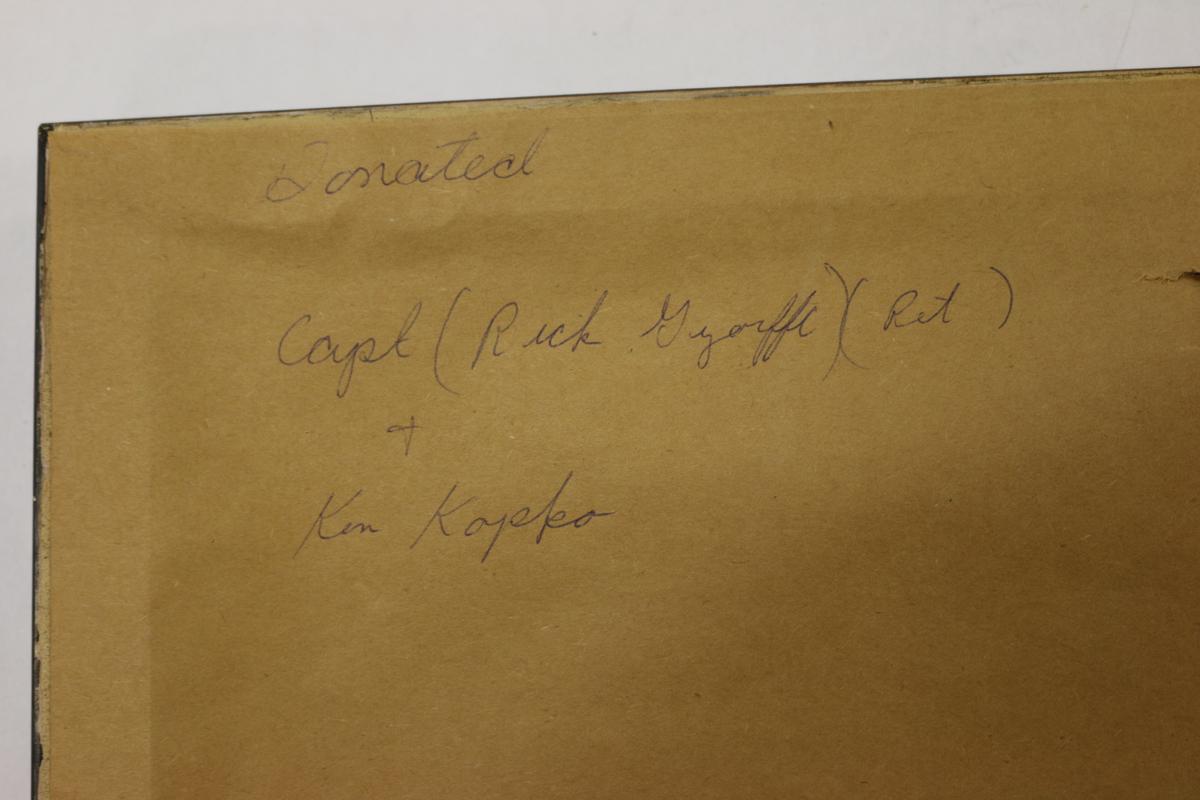 Donated
Capt (Rick Gyorffi) (Ret)
+
Ken Kopko